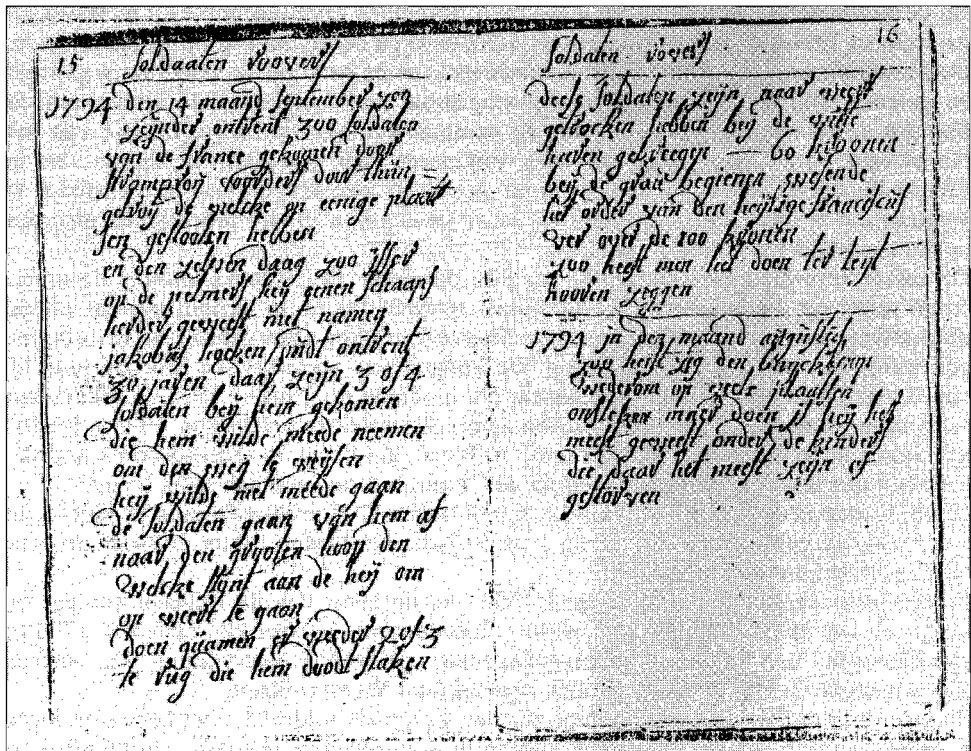 15 soldaaten roovers
1794 den 14 maand september zoo
zeijnder ontrent 300 soldaten
van de france gekomen door
stramproij voorders door thun
gelroij de welcke op eenige plaat
sen gestoolen hebben
en den zelven daag zoo isser
op de heij genen schaaps
herder geweest met namen
jakobus hocken oudt ontrent
30 jaren daar zeijn 3 of 4
soldaten beij hem gekomen
die hem wilde meede neemen
om den weg te weijsen
heij wilde niet meede gaan
de soldaten gaan van hem af
naar den grooten hoop den
welcke stont aan de heij om
op weert te gaan
doen quamen er weeder 2 of 3
te rug die hem doodt staken
16
soldaten rovers
deese soldaten zeijn naar weert
getrocken hebben beij de witte
heeren gekreegen — 60 kroonen
beij de grau begienen wesende
het order van den heijlige franciscus
ver over de 100 kroonen
zoo heeft men het doen ter teijt
hooren zeggen
1794 in dez maand augustus
zoo heeft zig den
wederom op veele plaatsen
ontsteken maer doen is heij het
meest geweest onder de kinders
die daar het meest zeijn af
gestorven